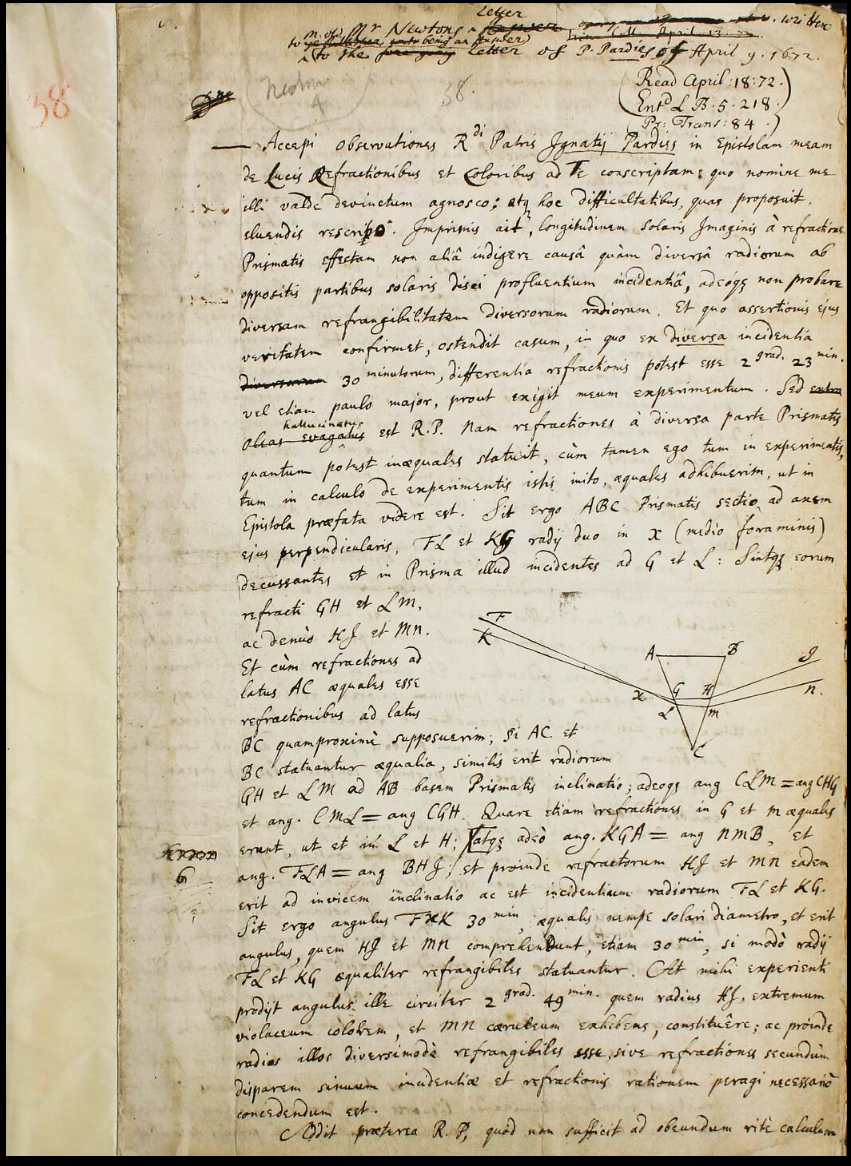 Letter
m. of Mr Newtons a written
to being an
to the Letter of P. Pardies of April 9. 1672.
Read April: 18: 72.
Entd L B: 5: 218.
Pr: Trans: 84.
38
Newton
4
38.
Accepi observationes Rdi Patris Ignatij Pardies in Epistolam meam
de Lucis Refractionibus et Coloribus ad Te conscriptam: quo nomine me
illi valde devinctum agnosco; atq hoc difficultatibus, quas proposuit,
eluendis rescripo. Imprimis ait, longitudinem solaris Imaginis à refractione
Prismatis effectam non aliâ indigere causâ quàm diversâ radiorum ab
oppositis partibus solaris disci profluentium incidentiâ, adeóqs non probare
diversam refrangibilitatem diversorum radiorum. Et quo assertionis ejus
veritatem confirmet, ostendit casum, in quo ex diversa incidentia
diversarum 30 minutorum, differentia refractionis potest esse 2 grad. 23 min.
vel etiam paulo major, prout exigit meum experimentum. Sed extra
hallucinatus
oleas evagatus est R.P. Nam refractiones à diversa parte Prismatis
quantum potest inæquales statuit, cùm tamen ego tum in experimentis,
tum in calculo de experimentis istis inito, æquales adhibuerim, ut in
Epistola præfata videre est. Sit ergo ABC Prismatis sectio ad axem
ejus perpendicularis, FL et KG radij duo in x (medio foraminis)
decussantes et in Prisma illud incidentes ad G et L: Sintqs eorum
refracti GH et LM,
ac denuò HI et MN.
Et cùm refractiones ad
latus AC æquales esse
refractionibus ad latus
BC quamproximè supposuerim; si AC et
BC statuantur æqualia, similis erit radiorum
F
K
A
B
I
x
G
H
n.
L
m
C
GH et LM ad AB basem Prismatis inclinatio; adeoqs ang CLM = ang CHG
et ang. CML = ang CGH. Quare etiam refractiones in G et m æquales
erunt, ut et in L et H; Atqs adeò ang. KGA = ang NMB, et
6
ang. FLA = ang BHI; et proinde refractorum HI et MN eadem
erit ad invicem inclinatio ac est incidentium radiorum FL et KG.
Sit ergo angulus FxK 30 min, æqualis nempe solari diametro, et erit
angulus, quem HI et MN comprehendunt, etiam 30 min, si modò radij
FL et KG æqualiter refrangibiles statuantur. At mihi experienti
prodijt angulus ille circiter 2 grad. 49 min. quem radius HI, extremum
violaceum colorem, et MN cæruleum exhibens, constituêre; ac proinde
radios illos diversimodè refrangibiles esse, sive refractiones secundùm
disparem sinuum incidentiæ et refractionis rationem peragi necessariò
concedendum est.
Addit præterea R. P, quòd non sufficit ad obeundum ritè calculum